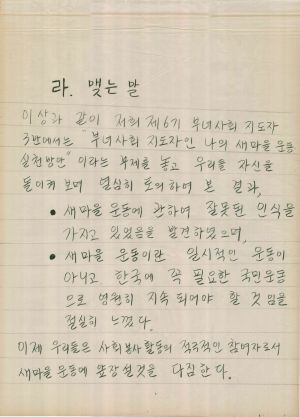 라. 맺는 말
이상과 같이 저희 제6기 부녀사회 지도자
3반에서는 "부녀사회 지도자인 나의 새마을 운동
실천방안" 이라는 부제를 놓고 우리들 자신을
돌이켜 보며 열심히 토의하여 본 결과,
● 새마을 운동에 관하여 잘못된 인식을
가지고 있었음을 발견하였으며,
● 새마을 운동이란 일시적인 운동이
아니고 한국에 꼭 필요한 국민운동
으로 영원히 지속 되어야 할 것임을
절실히 느꼈다.
이제 우리들은 사회봉사 활동의 적극적인 참여자로서
새마을 운동에 앞장설것을 다짐한다.